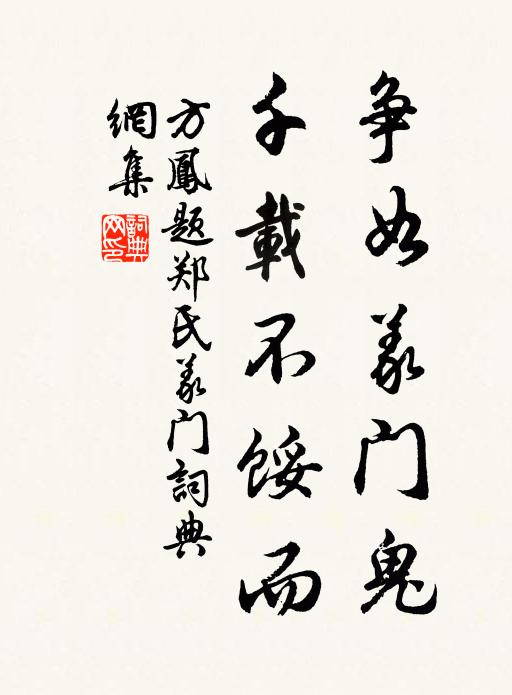 争如义门鬼
千載不馁而
方鳳题郑氏义门詞典
網集
詞典网印